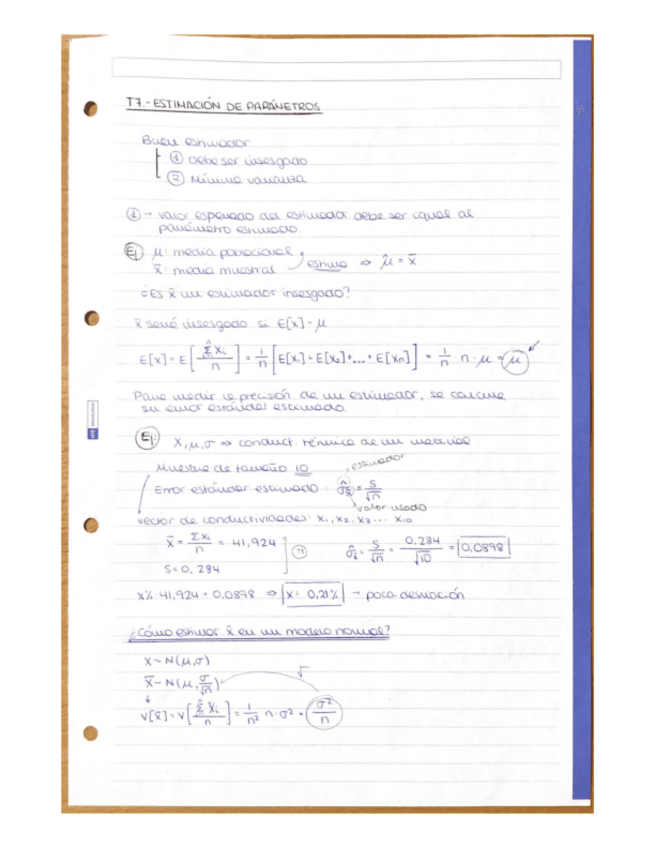 T7.-ESTIMACIÓN DE PARÁMETROS
Buen estimador
① Debe ser insesgado
② Mínima varianza
① → valor esperado del estimador debe ser igual al
parámetro estimado.
Ej μ: media poblacional
x̄: media muestral estima ⇒ μ̂ = x̄
¿Es x̄ un estimador insesgado?
x̄ será insesgado si E[x] = μ
E[x] = E[Σxi/n] = 1/n [E[x1] + E[x2] + ... + E[xn]] = 1/n · n · μ = μ
Para medir la precisión de un estimador, se calcula
su error estándar estimado.
Ej: X, μ, σ ⇒ conduct. térmica de un material
Muestra de tamaño 10 estimador
Error estándar estimado: σ̂x̄ = S/√n
valor usado
vector de conductividades: x1, x2, x3 ... x10
x̄ = Σxi/n = 41,924 σ̂x̄ = S/√n = 0,284/√10 = 0,0898
S = 0,284
x% · 41,924 = 0,0898 ⇒ x = 0,21% → poca desviación
¿Cómo estimar x̄ en un modelo normal?
X ~ N(μ,σ)
X̄ ~ N(μ, σ/√n) √
↓
V[x̄] = V[Σxi/n] = 1/n² n · σ² = σ²/n